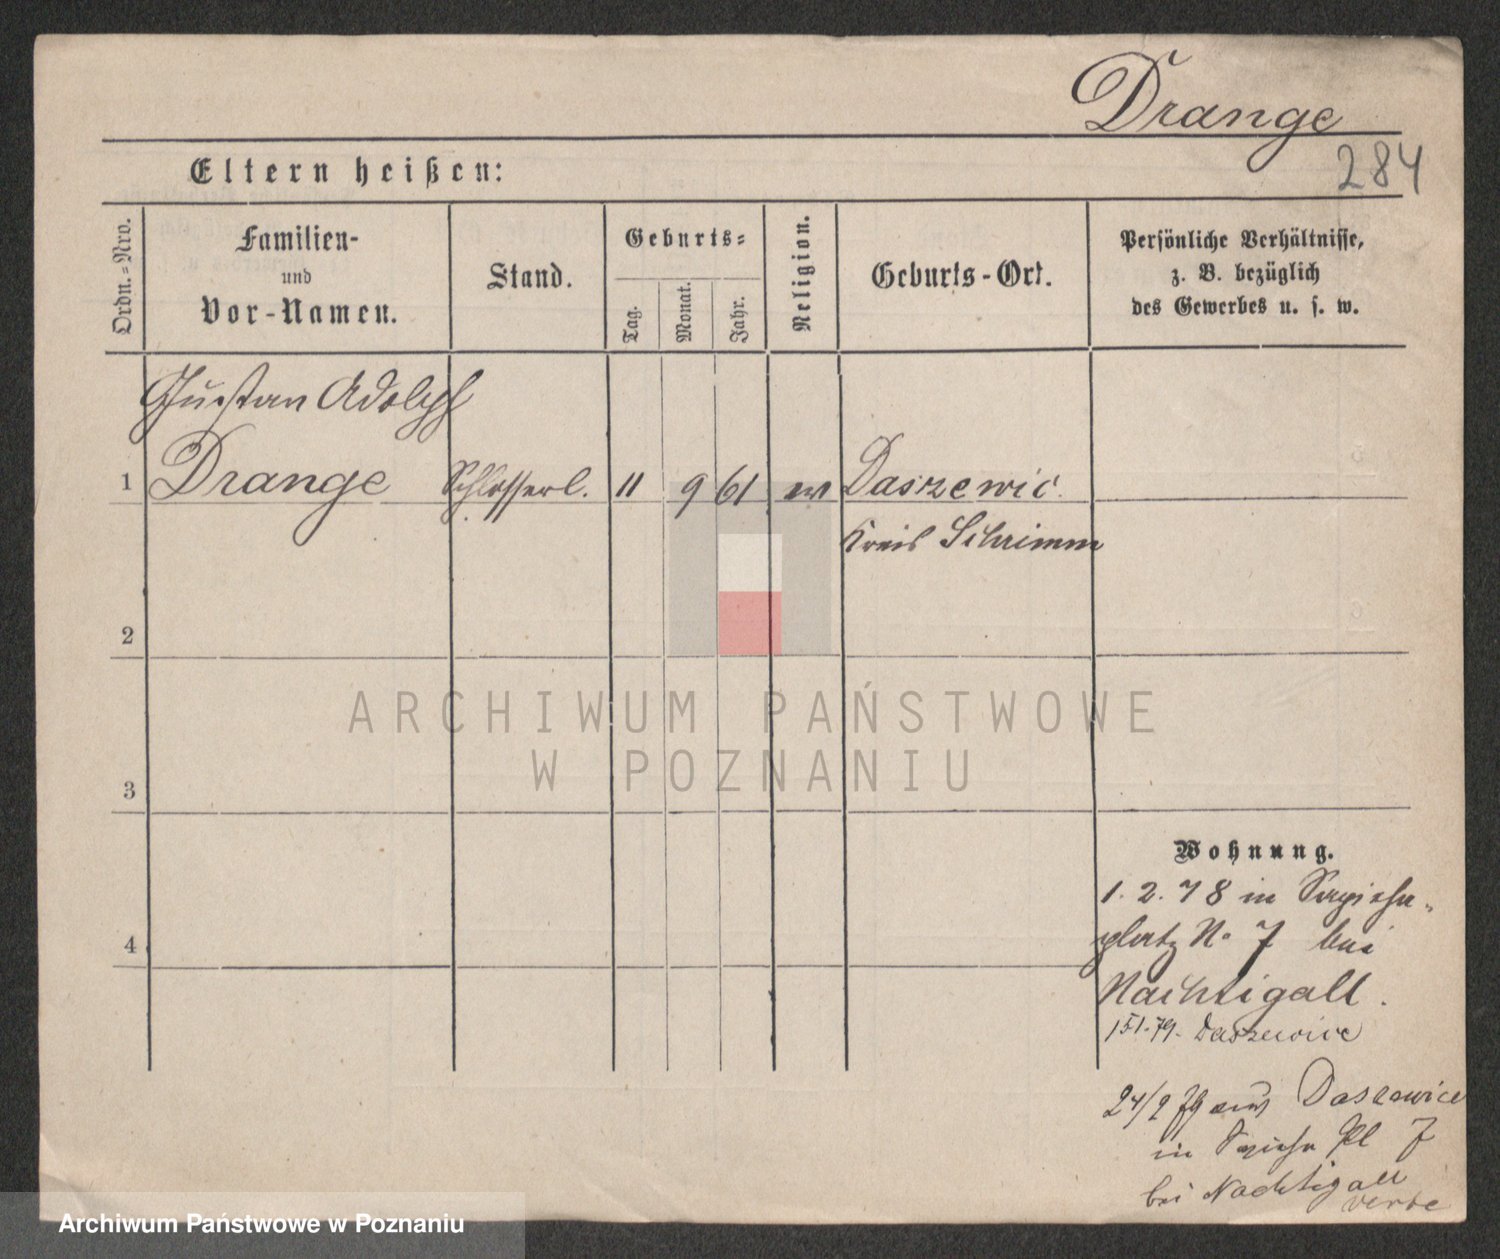 Drange
284
Eltern heißen:
Ordn.-Nro.
Familien-
und
Vor-Namen.
Stand.
Geburts-
Tag.
Monat.
Jahr.
Religion.
Geburts-Ort.
Persönliche Verhältnisse,
z. B. bezüglich
des Gewerbes u. s. w.
Gustav Adolph
1 Drange Schlosserl. 11 9 61 ev Daszewic
Kreis Schrimm
2
3
4
ARCHIWUM PAŃSTWOWE
W POZNANIU
Wohnung.
1. 2. 78 in Sapieha-
platz No 7 bei
Nachtigall.
15 1. 79. Daszewice
24/2 79 aus Daszewice
in Sapieha Pl 7
bei Nachtigall
Archiwum Państwowe w Poznaniu